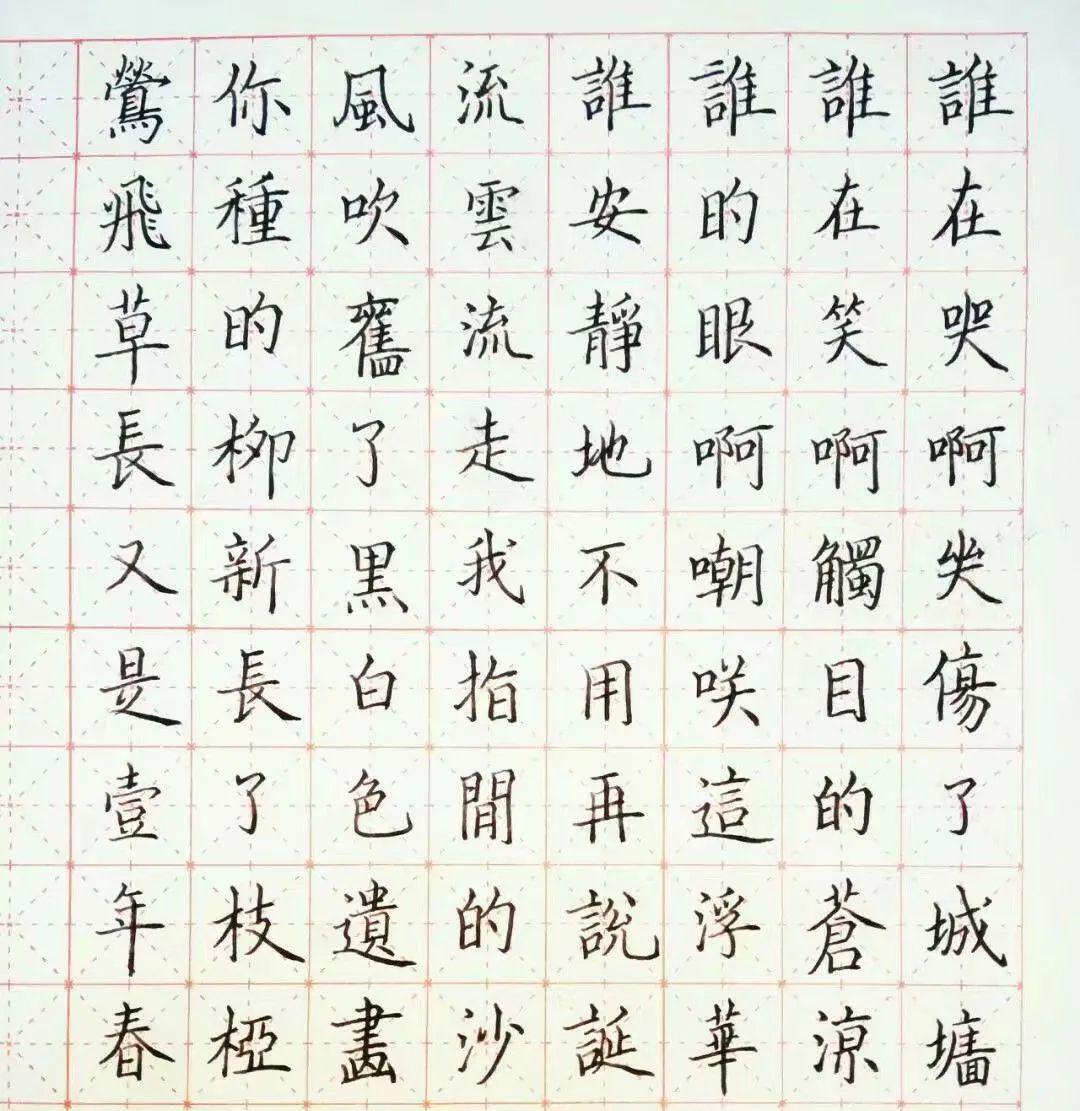 誰在哭啊哭傷了城墻
誰在笑啊觸目的蒼涼
誰的眼啊嘲咲這浮華
誰安靜地不用再說誕
流雲流走我指間的沙
風吹舊了黑白色遺畫
你種的柳新長了枝椏
鶯飛草長又是壹年春